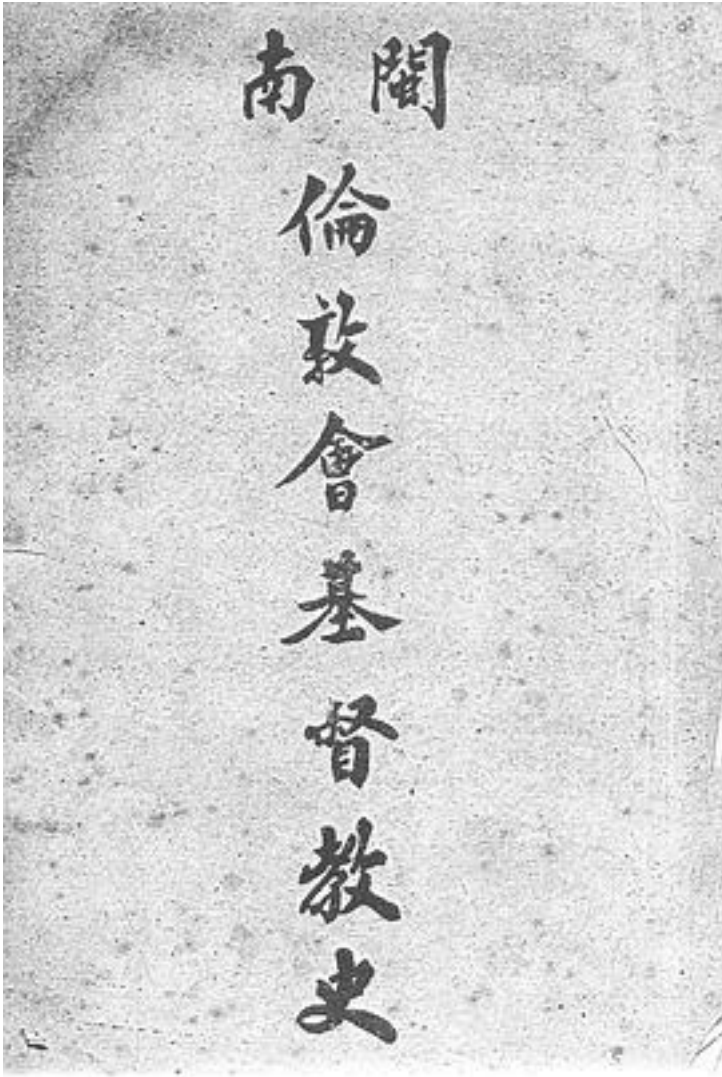 閩南
倫敦會基督教史